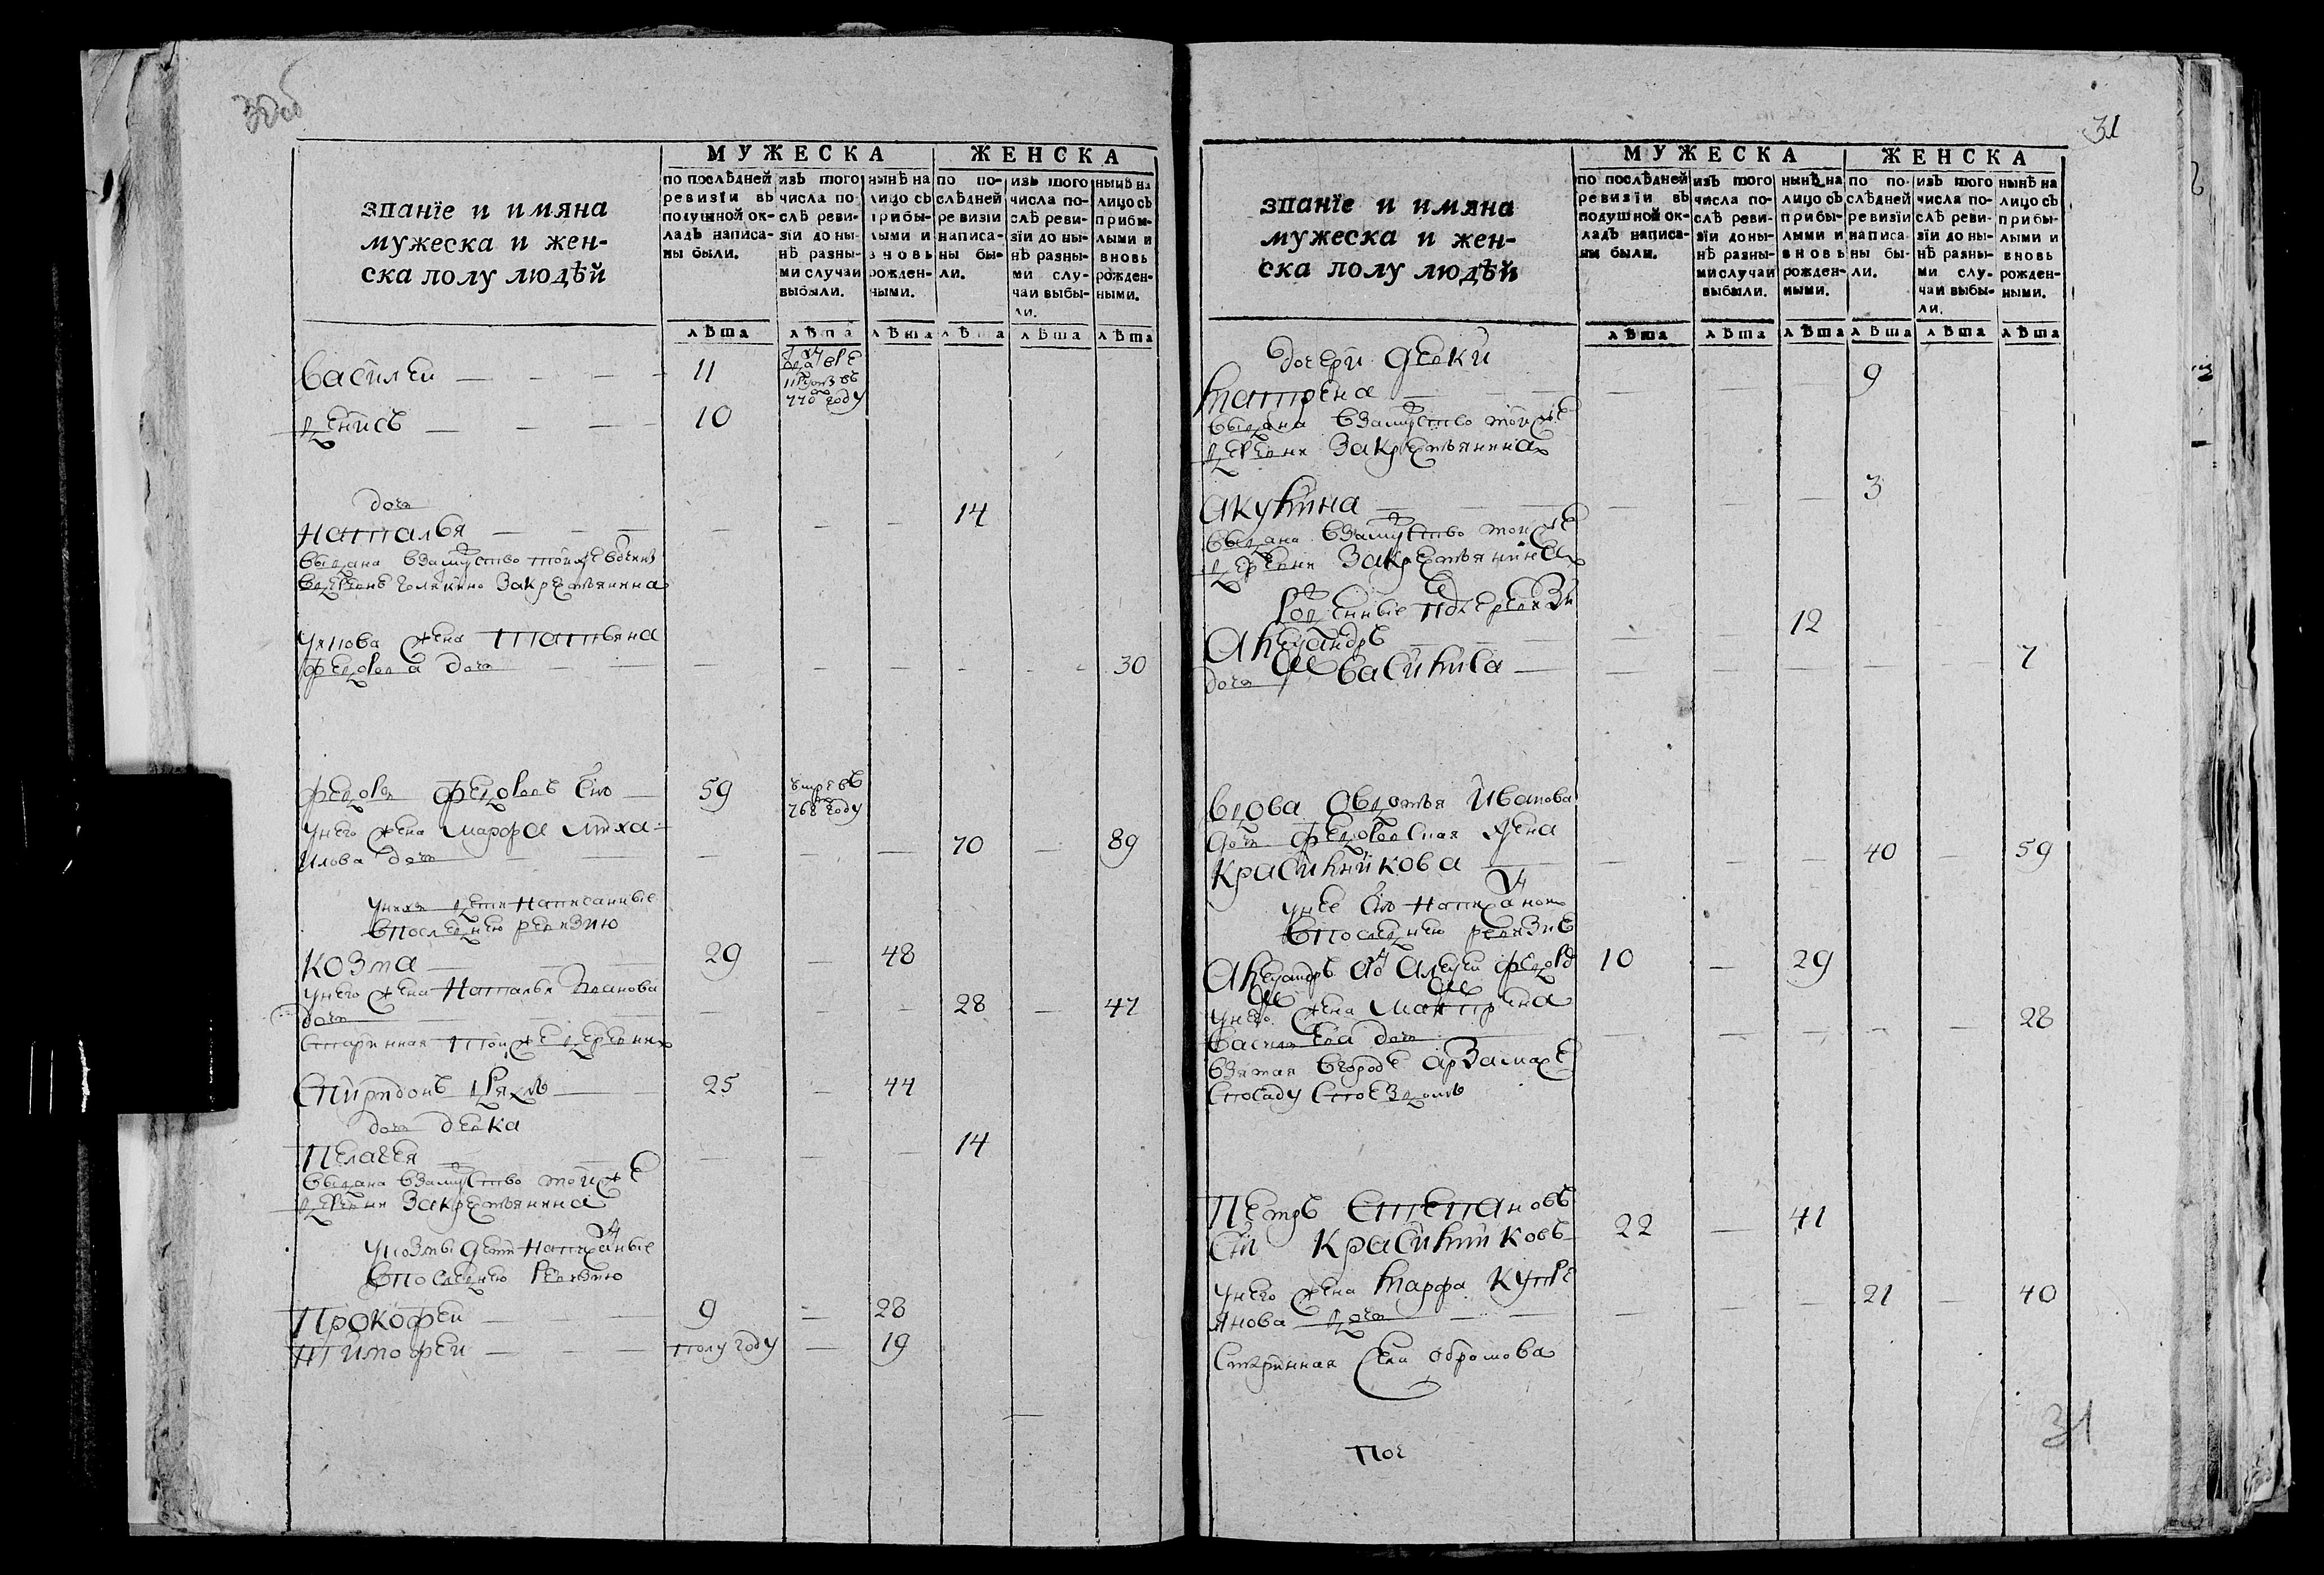 30об
званіе и имяна
мужеска и жен-
ска полу людѣй
МУЖЕСКА
ЖЕНСКА
по послѣдней ревизіи въ подушной окладъ написаны были.
изъ того числа послѣ ревизіи до нынѣ разными случаи выбыли.
нынѣ на лицо съ прибылыми и вновь рожденными.
по послѣдней ревизіи написаны были.
изъ того числа послѣ ревизіи до нынѣ разными случаи выбыли.
нынѣ на лицо съ прибылыми и вновь рожденными.
лѣта лѣта лѣта лѣта лѣта лѣта
Василеи 11
году
Денисъ 10
дочь
Наталья 14
выдана взамуство тоиже вотчины
в деревню закрестьянина
жена Татьяна
Федорова дочь 30
Федоръ Федоровъ снъ 59 умре въ
768 году
унего жена Марфа Миха-
илова дочь 70 89
уних дети написанные
впоследнею ревизию
Козма 29 48
унего жена Наталья Иванова
дочь 28 47
старинная тоиже деревни
Спиридонъ 25 44
дочь девка
Пелагея 14
выдана взамуство тоиже
деревни закрестьянина
укозмы дети написаные
впоследнею ревизию
Прокофеи 9 28
Тимофеи полу году 19
31
званіе и имяна
мужеска и жен-
ска полу людѣй
МУЖЕСКА
ЖЕНСКА
по послѣдней ревизіи въ подушной окладъ написаны были.
изъ того числа послѣ ревизіи до нынѣ разными случаи выбыли.
нынѣ на лицо съ прибылыми и вновь рожденными.
по послѣдней ревизіи написаны были.
изъ того числа послѣ ревизіи до нынѣ разными случаи выбыли.
нынѣ на лицо съ прибылыми и вновь рожденными.
лѣта лѣта лѣта лѣта лѣта лѣта
дочери девки
Матрена 9
выдана взамуство тоиже
деревни закрестьянина
Акулина 3
выдана взамуство тоиже
деревни закрестьянина
рожденные после ревизи
Александръ 12
дочь Василиса 7
вдова Овдотья Иванова
дочь Федоровская жена
Красильникова 40 59
унее снъ написанои
впоследнею ревизие
Александръ Алексеи 10 29
унего жена Матрена
Васильева дочь 28
взятая вгороде Арзамасе
спосаду
Петръ Степановъ
снъ Красильниковъ 22 41
унего жена Марфа Купре
янова дочь 21 40
старинная села Абрамова
31
пос